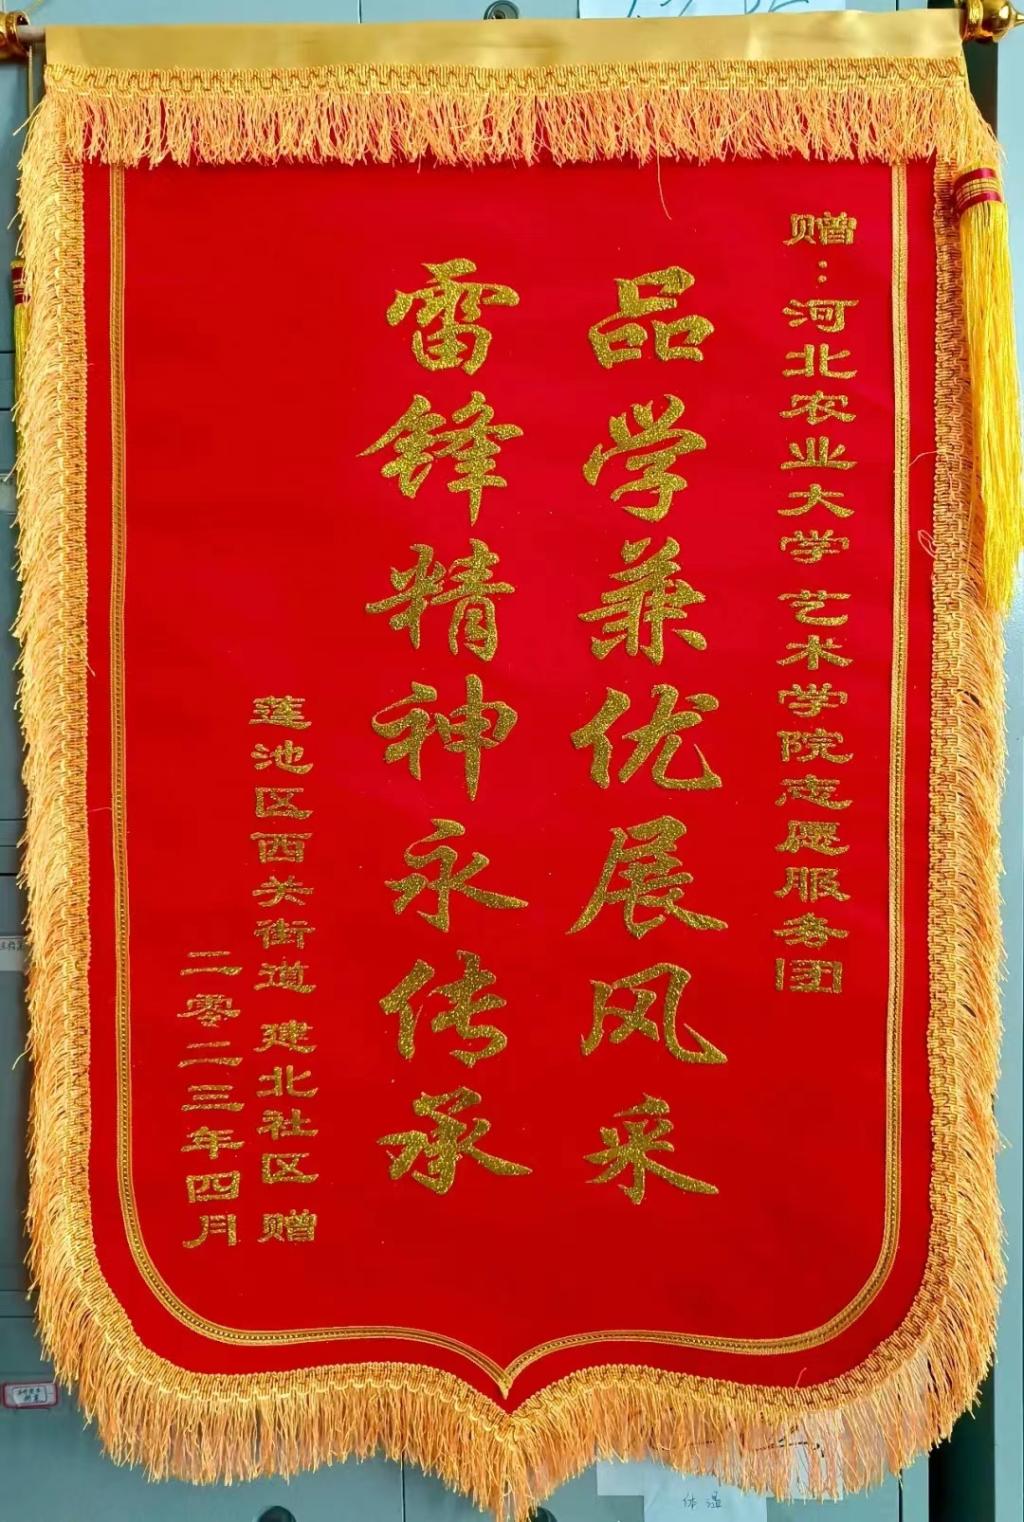 赠：河北农业大学 艺术学院志愿服务团
品学兼优展风采
雷锋精神永传承
莲池区西关街道 建北社区 赠
二零二三年四月
体温